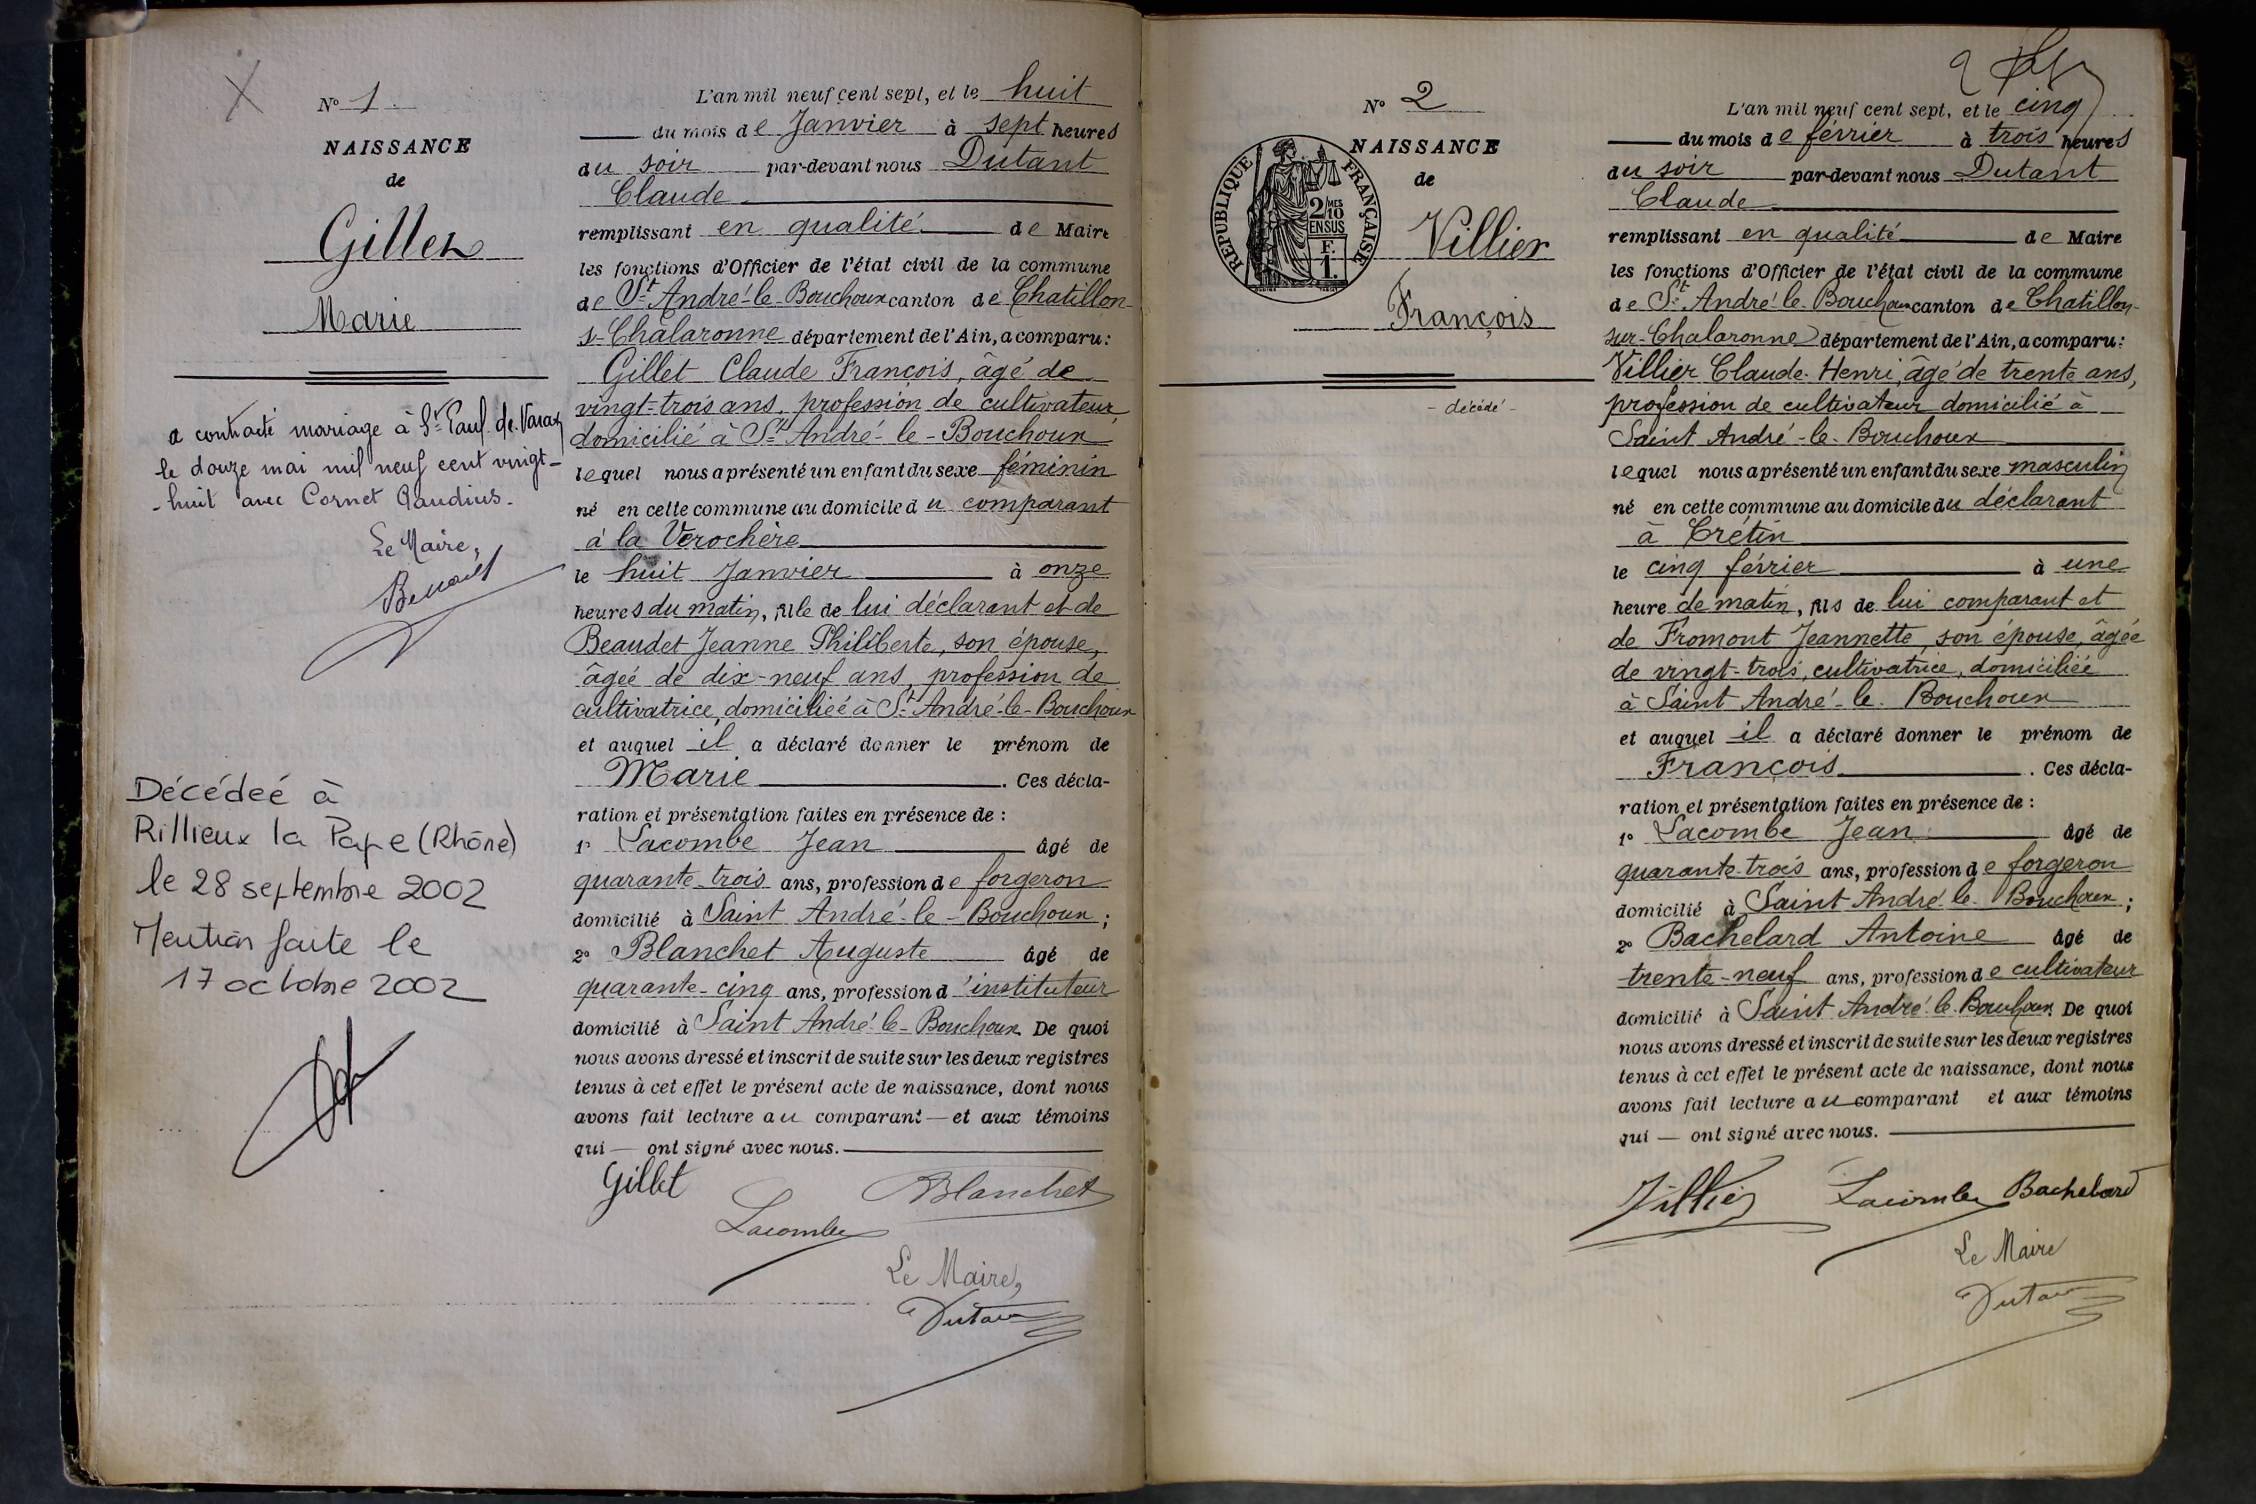 N° 1
NAISSANCE
de
Gillet
Marie
a contracté mariage à St Paul de Varax
le douze mai mil neuf cent vingt-
-huit avec Cornet Claudius.
Le Maire,
Décédeé à
Rillieux la Pape (Rhône)
le 28 septembre 2002
Mention faite le
17 octobre 2002
L'an mil neuf cent sept, et le huit
du mois de Janvier à sept heures
du soir par-devant nous Dutant
Claude
remplissant en qualité de Maire
les fonctions d'Officier de l'état civil de la commune
de St André-le-Bouchoux canton de Chatillon-
s-Chalaronne département de l'Ain, a comparu :
Gillet Claude François, âgé de
vingt-trois ans, profession de cultivateur
domicilié à St André-le-Bouchoux
lequel nous a présenté un enfant du sexe féminin
né en cette commune au domicile du comparant
à la Verochère
le huit Janvier à onze
heures du matin, fille de lui déclarant et de
Beaudet Jeanne Philiberte, son épouse,
âgée de dix-neuf ans, profession de
cultivatrice, domiciliée à St André-le-Bouchoux
et auquel il a déclaré donner le prénom de
Marie. Ces décla-
ration et présentation faites en présence de :
1° Lacombe Jean âgé de
quarante trois ans, profession de forgeron
domicilié à Saint André-le-Bouchoux ;
2° Blanchet Auguste âgé de
quarante-cinq ans, profession d'instituteur
domicilié à Saint André-le-Bouchoux De quoi
nous avons dressé et inscrit de suite sur les deux registres
tenus à cet effet le présent acte de naissance, dont nous
avons fait lecture au comparant — et aux témoins
qui — ont signé avec nous.
Gillet
Blanchet
Lacombe
Le Maire,
Dutant
N° 2
NAISSANCE
de
RÉPUBLIQUE FRANÇAISE
2/10 MES
EN SUS
F.
1.
Villier
François
- décédé -
2
L'an mil neuf cent sept, et le cinq
du mois de février à trois heures
du soir par-devant nous Dutant
Claude
remplissant en qualité de Maire
les fonctions d'Officier de l'état civil de la commune
de St André-le-Bouchoux canton de Chatillon-
sur-Chalaronne département de l'Ain, a comparu :
Villier Claude-Henri, âgé de trente ans,
profession de cultivateur domicilié à
Saint André-le-Bouchoux
lequel nous a présenté un enfant du sexe masculin
né en cette commune au domicile du déclarant
à Crétin
le cinq février à une
heure de matin, fils de lui comparant et
de Fromont Jeannette, son épouse, âgée
de vingt-trois, cultivatrice, domiciliée
à Saint André-le-Bouchoux
et auquel il a déclaré donner le prénom de
François. Ces décla-
ration et présentation faites en présence de :
1° Lacombe Jean âgé de
quarante-trois ans, profession de forgeron
domicilié à Saint André-le-Bouchoux ;
2° Bachelard Antoine âgé de
trente-neuf ans, profession de cultivateur
domicilié à Saint André-le-Bouchoux De quoi
nous avons dressé et inscrit de suite sur les deux registres
tenus à cet effet le présent acte de naissance, dont nous
avons fait lecture au comparant et aux témoins
qui — ont signé avec nous.
Villier Lacombe Bachelard
Le Maire
Dutant